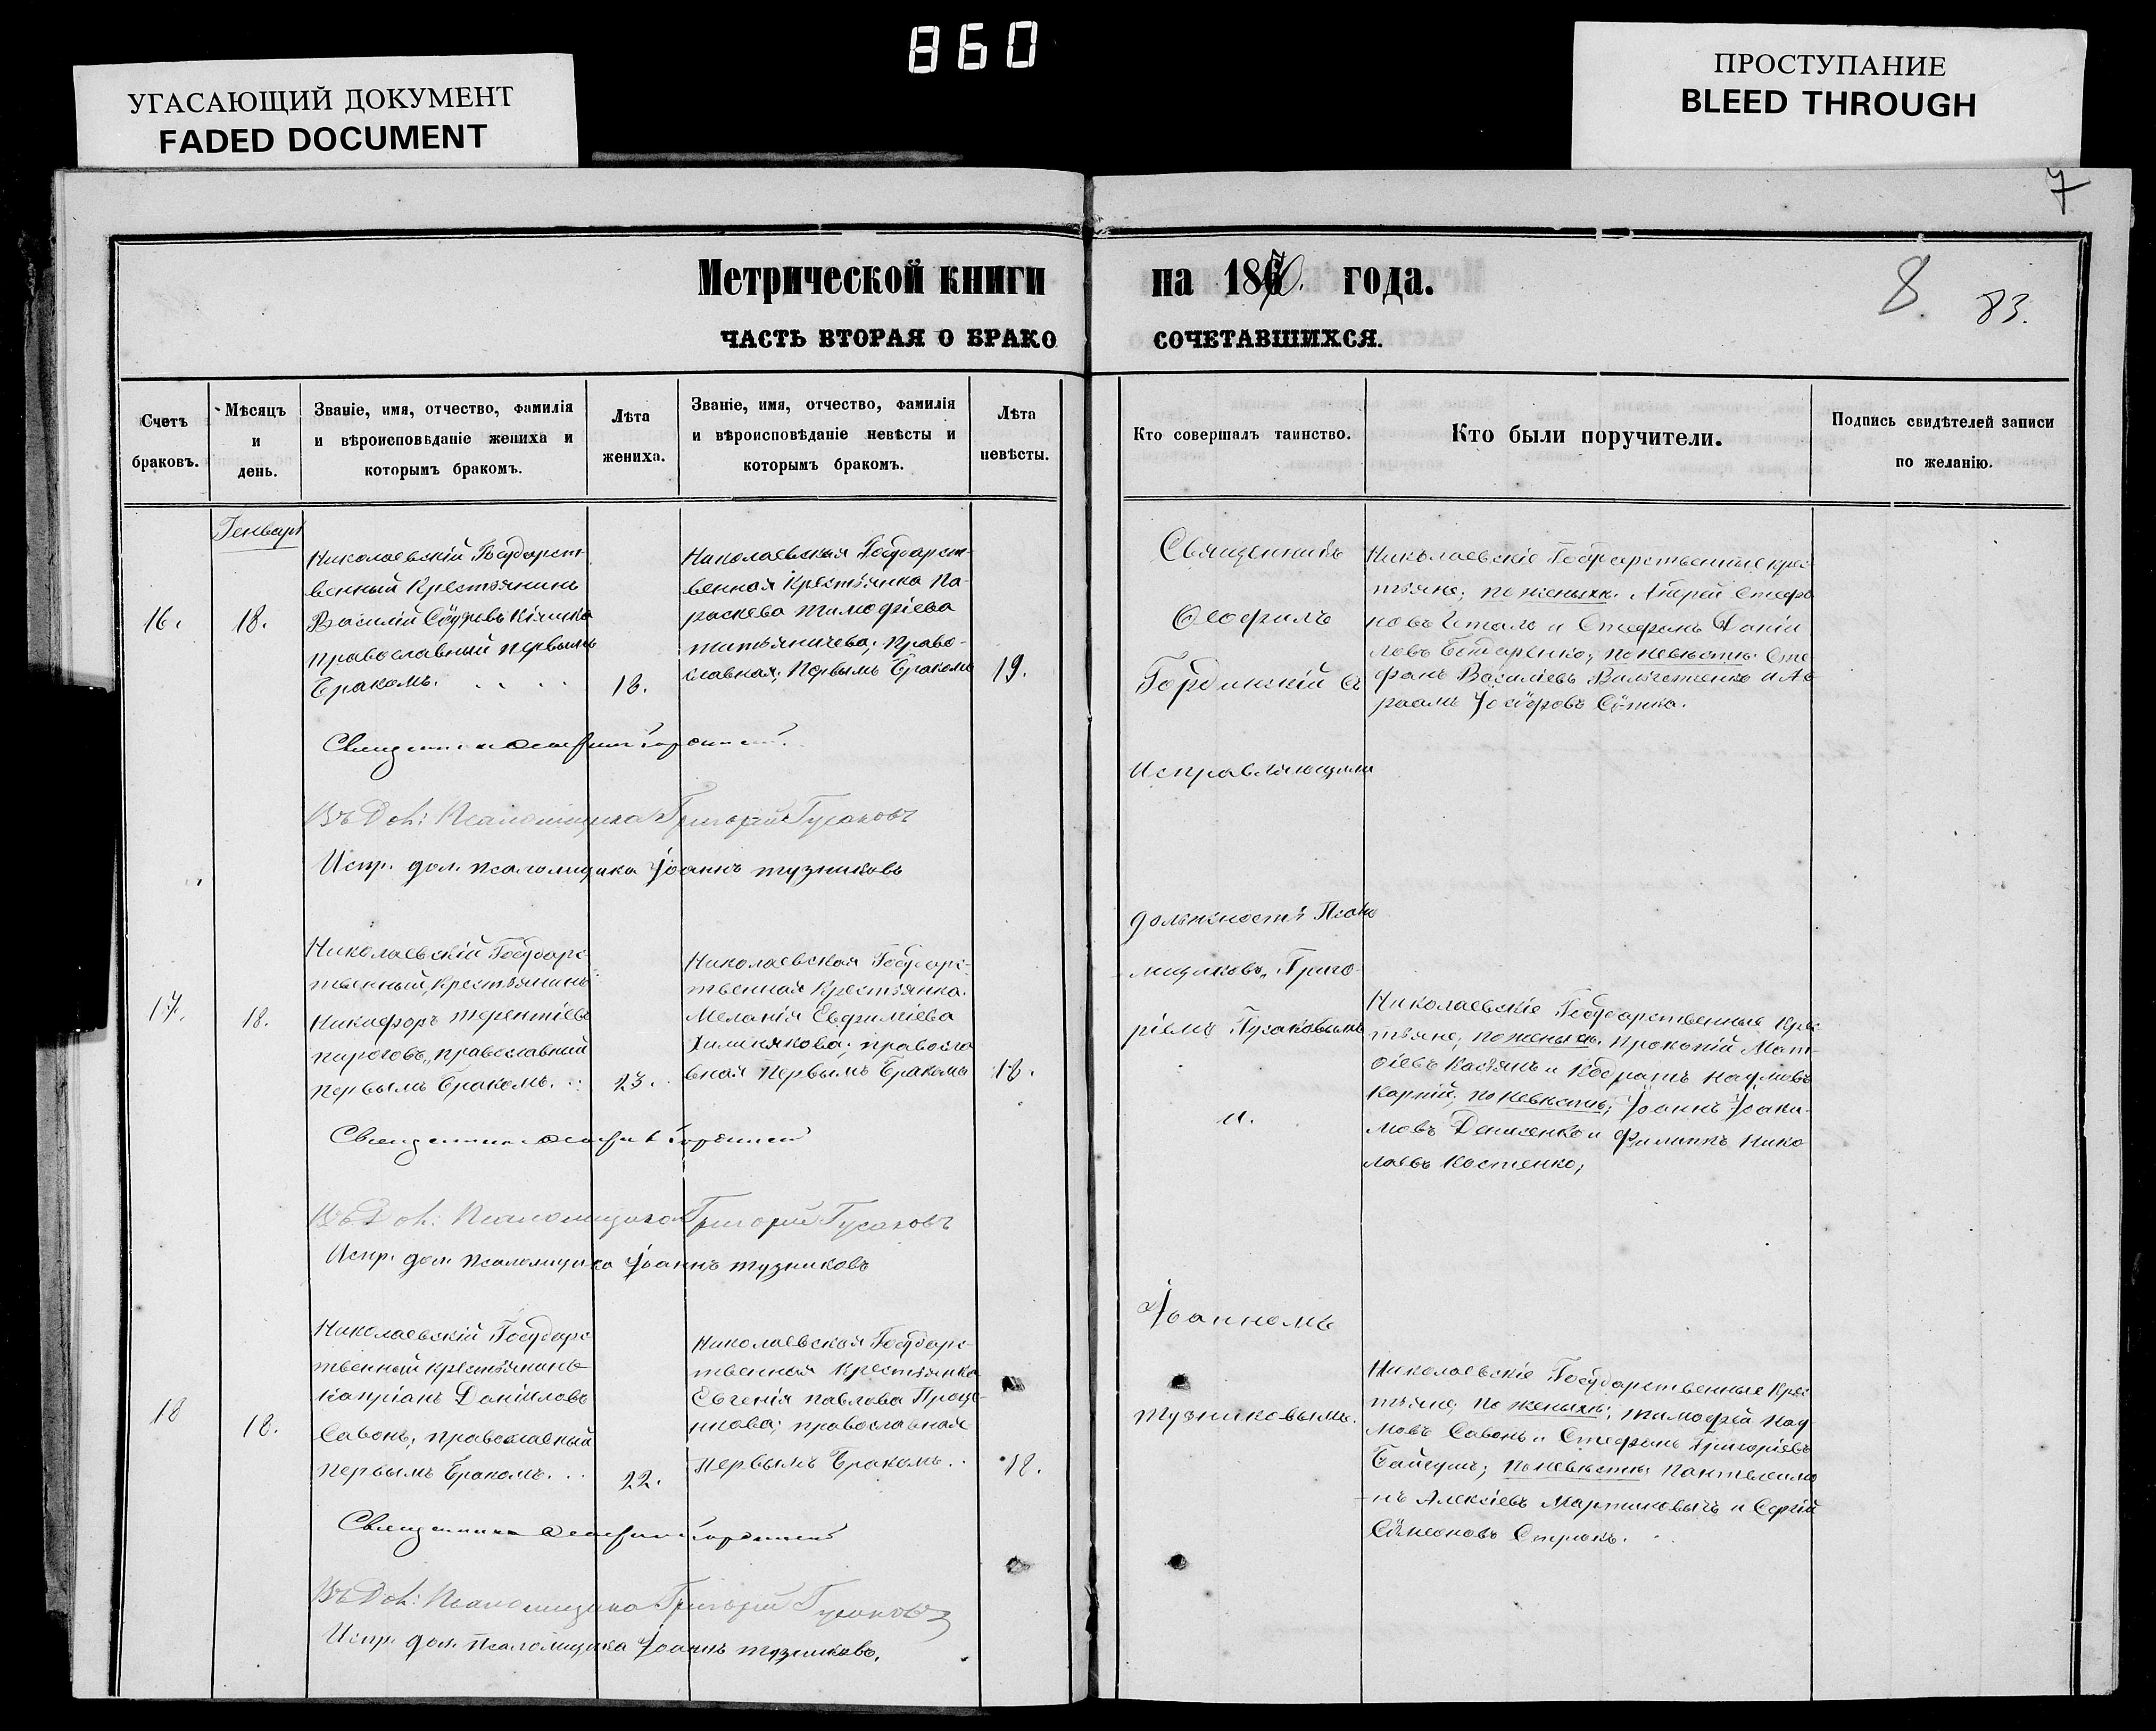 860
УГАСАЮЩИЙ ДОКУМЕНТ
FADED DOCUMENT
ПРОСТУПАНИЕ
BLEED THROUGH
7
Метрической книги на 1870. года.
8 83.
ЧАСТЬ ВТОРАЯ О БРАКО СОЧЕТАВШИХСЯ.
Счетъ
браковъ.
Мѣсяцъ
и
день.
Званіе, имя, отчество, фамилія
и вѣроисповѣданіе жениха и
которымъ бракомъ.
Лѣта
жениха.
Званіе, имя, отчество, фамилія
и вѣроисповѣданіе невѣсты и
которымъ бракомъ.
Лѣта
невѣсты.
Кто совершалъ таинство.
Кто были поручители.
Подпись свидѣтелей записи
по желанію.
Генварь
16.
18.
Николаевскій Государст
венный Крестьянинъ
Василій
православный первымъ
бракомъ.
18.
Николаевская Государст-
венная Крестьянка Па-
раскева Тимофіева
право-
славная; первымъ бракомъ
19.
Священникъ
Ѳеофилъ
Гординскій съ
Исправляющими
должность Псало
мщиковъ, Григо
ріемъ Гусаковымъ
и.
Іоанномъ
Тузниковымъ.
Николаевскіе Государственные крес
тьяне; по женихѣ: Андрей Стефа
новъ и Стефанъ Даніи
ловъ Бондаренко; по невѣстѣ: Сте
фанъ Василіевъ и Ав
раамъ
Въ Дол: Псаломщика Григорій Гусаковъ
Испр. дол. псаломщика Іоаннъ Тузниковъ
17.
18.
Николаевскій Государс
твенный Крестьянинъ
Никифоръ Терентіевъ
Пироговъ, православный
первымъ бракомъ.
23.
Николаевская Государс-
твенная Крестьянка
Меланія Евфиміева
правосла
вная первымъ бракомъ
18.
Николаевскіе Государственные Крес
тьяне; по женихѣ: Прокопій Мат-
ѳіевъ Касьянъ и Кодратъ Наумовъ
Карпій; по невѣстѣ; Іоаннъ Іоаки-
мовъ Денисенко и Филиппъ Нико
лаевъ Костенко;
Въ Дол: Псаломщика Григорій Гусаковъ
Испр. дол. псаломщика Іоаннъ Тузниковъ
18
18.
Николаевскій Государс
твенный крестьянинъ
Кипріанъ Даніиловъ
Савонъ, православный
первымъ бракомъ.
22.
Николаевская Государс-
твенная Крестьянка
Евгенія Павлова
православная
первымъ бракомъ.
18.
Николаевскіе Государственные Крес
тьяне; по женихѣ; Тимофей Нау
мовъ Савонъ и Стефанъ Григоріевъ
по невѣстѣ: Пантелеимо
нъ Алексіевъ Мартиновичъ и Сергій
Симеоновъ
Въ Дол: Псаломщика Григорій Гусаковъ
Испр. дол. псаломщика Іоаннъ Тузниковъ.